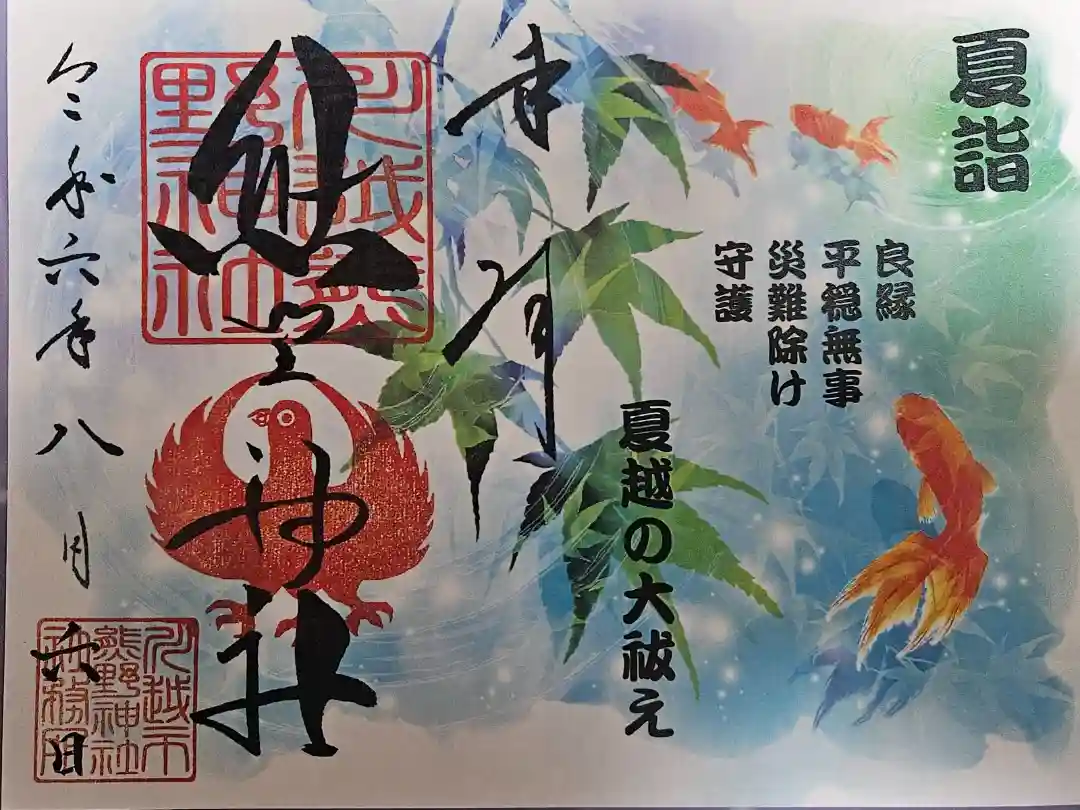 夏詣
良縁
平穏無事
災難除け
守護
夏越の大祓え
奉拝
熊野神社
川越熊野神社
令和六年八月六日
川越市
熊野神社
社務所